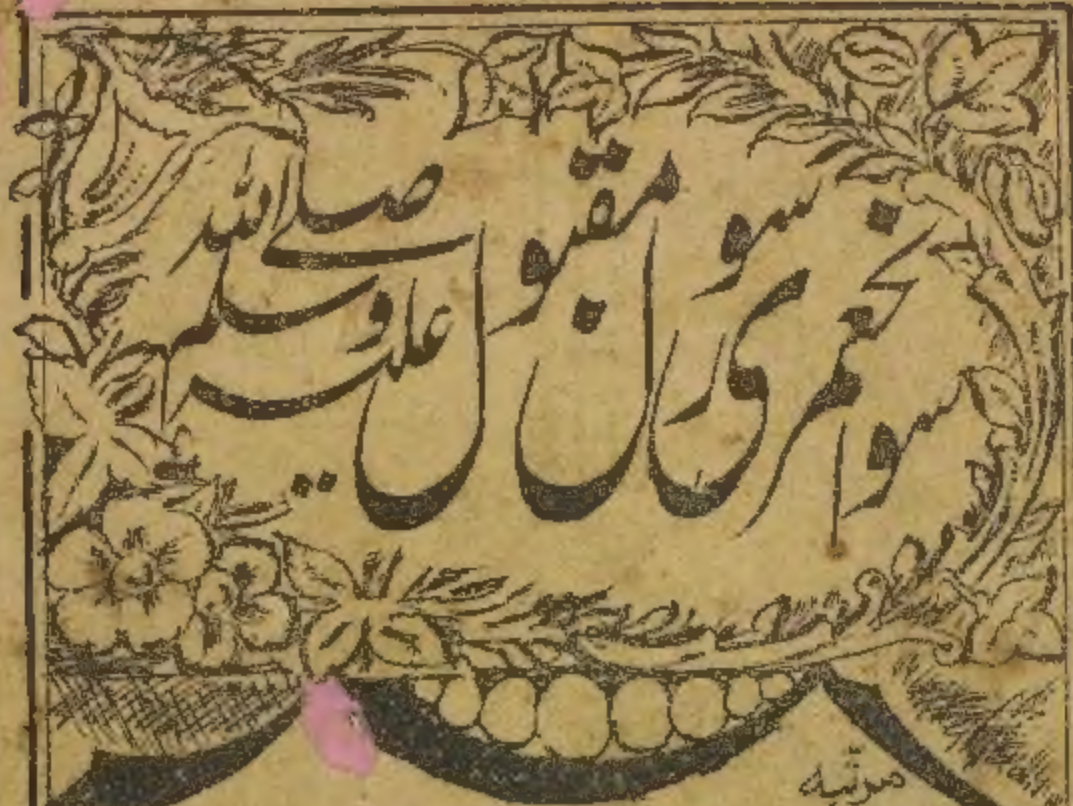 سوانحعمری رسول مقبول صلی اللہ علیہ وسلم
مرتبہ